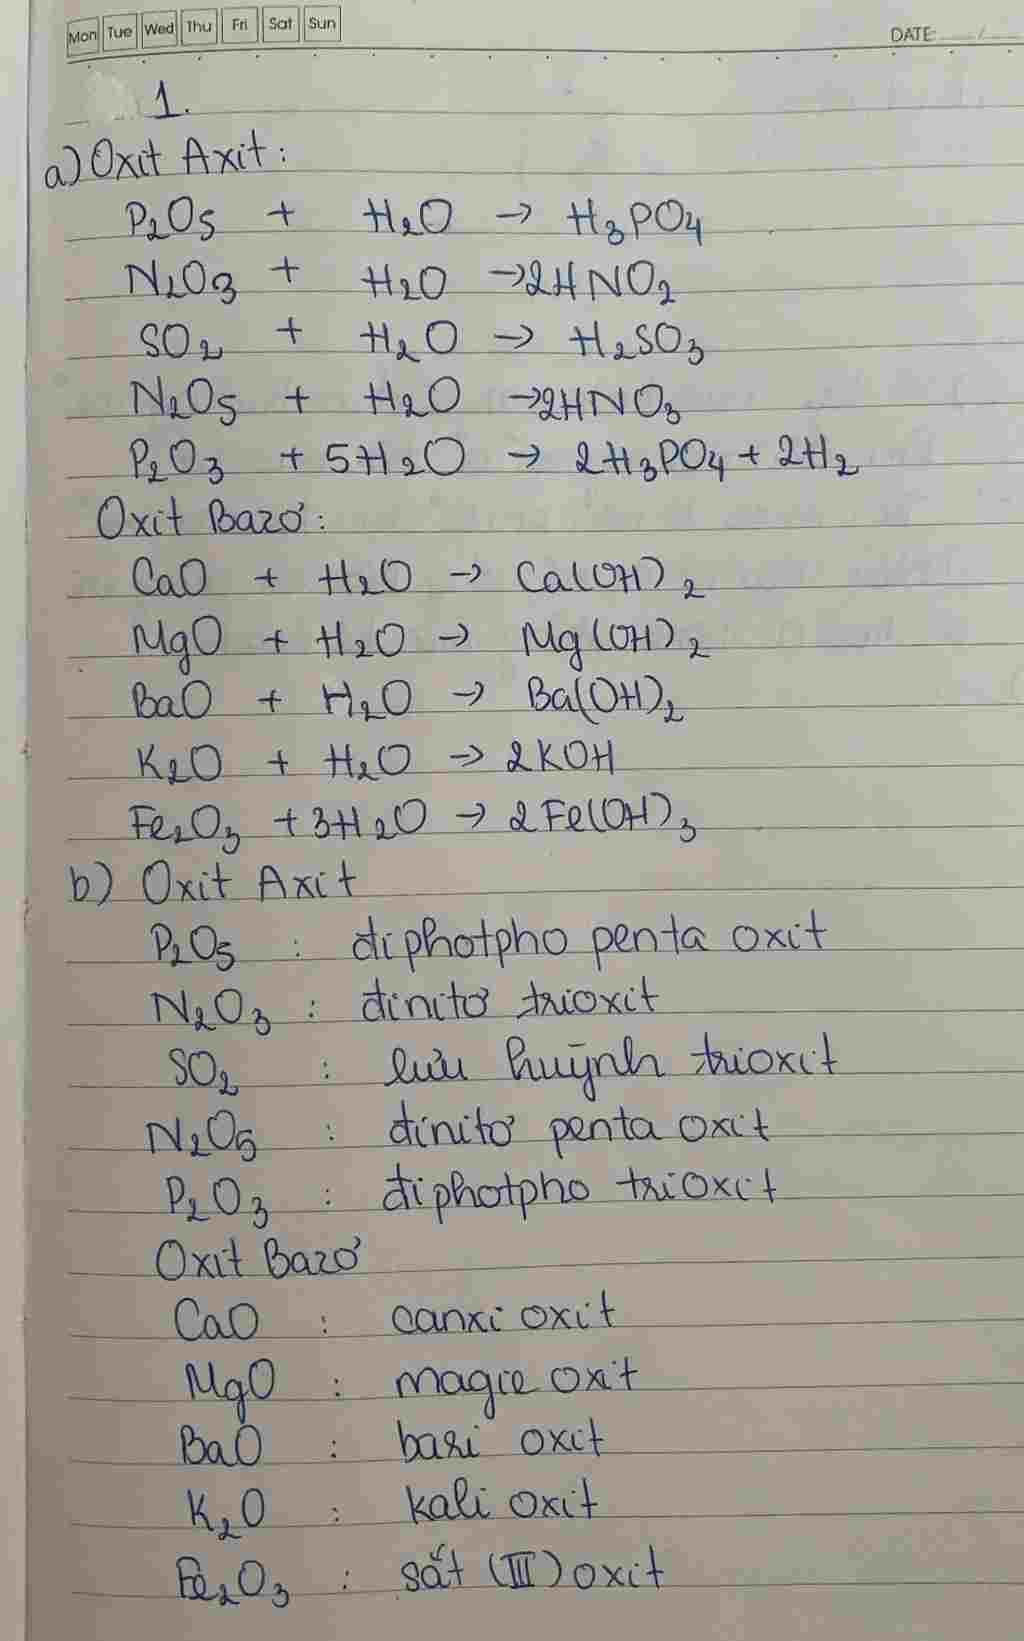 Mon Tue Wed Thu Fri Sat Sun
DATE: / 
1.
a) Oxit Axit:
P₂O₅ + H₂O → H₃PO₄
N₂O₃ + H₂O → 2HNO₂
SO₂ + H₂O → H₂SO₃
N₂O₅ + H₂O → 2HNO₃
P₂O₃ + 5H₂O → 2H₃PO₄ + 2H₂
Oxit Bazơ:
CaO + H₂O → Ca(OH)₂
MgO + H₂O → Mg(OH)₂
BaO + H₂O → Ba(OH)₂
K₂O + H₂O → 2KOH
Fe₂O₃ + 3H₂O → 2Fe(OH)₃
b) Oxit Axit
P₂O₅ : điphotpho penta oxit
N₂O₃ : đinitơ trioxit
SO₂ : lưu huỳnh trioxit
N₂O₅ : đinitơ penta oxit
P₂O₃ : điphotpho trioxit
Oxit Bazơ
CaO : canxi oxit
MgO : magie oxit
BaO : bari oxit
K₂O : kali oxit
Fe₂O₃ : sắt (III) oxit